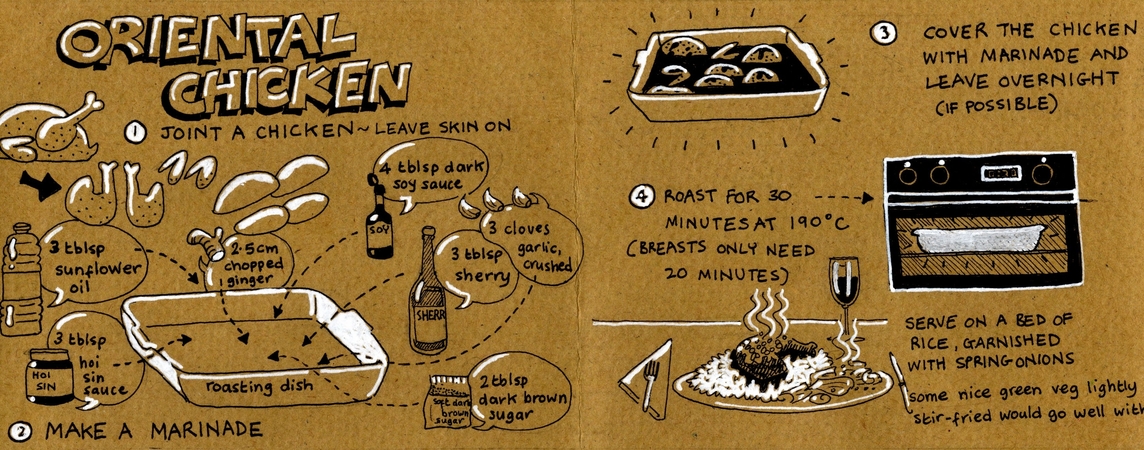 ORIENTAL
CHICKEN
1 JOINT A CHICKEN ~ LEAVE SKIN ON
4 tblsp dark
soy sauce
SOY
3 cloves
garlic,
crushed
3 tblsp
sherry
SHERR
2·5cm
chopped
ginger
3 tblsp
sunflower
oil
3 tblsp
hoi
sin
sauce
HOI
SIN
roasting dish
2 tblsp
dark brown
sugar
soft dark
brown
sugar
2 MAKE A MARINADE
3 COVER THE CHICKEN
WITH MARINADE AND
LEAVE OVERNIGHT
(IF POSSIBLE)
4 ROAST FOR 30
MINUTES AT 190°C
(BREASTS ONLY NEED
20 MINUTES)
SERVE ON A BED OF
RICE, GARNISHED
WITH SPRING ONIONS
some nice green veg lightly
stir-fried would go well with